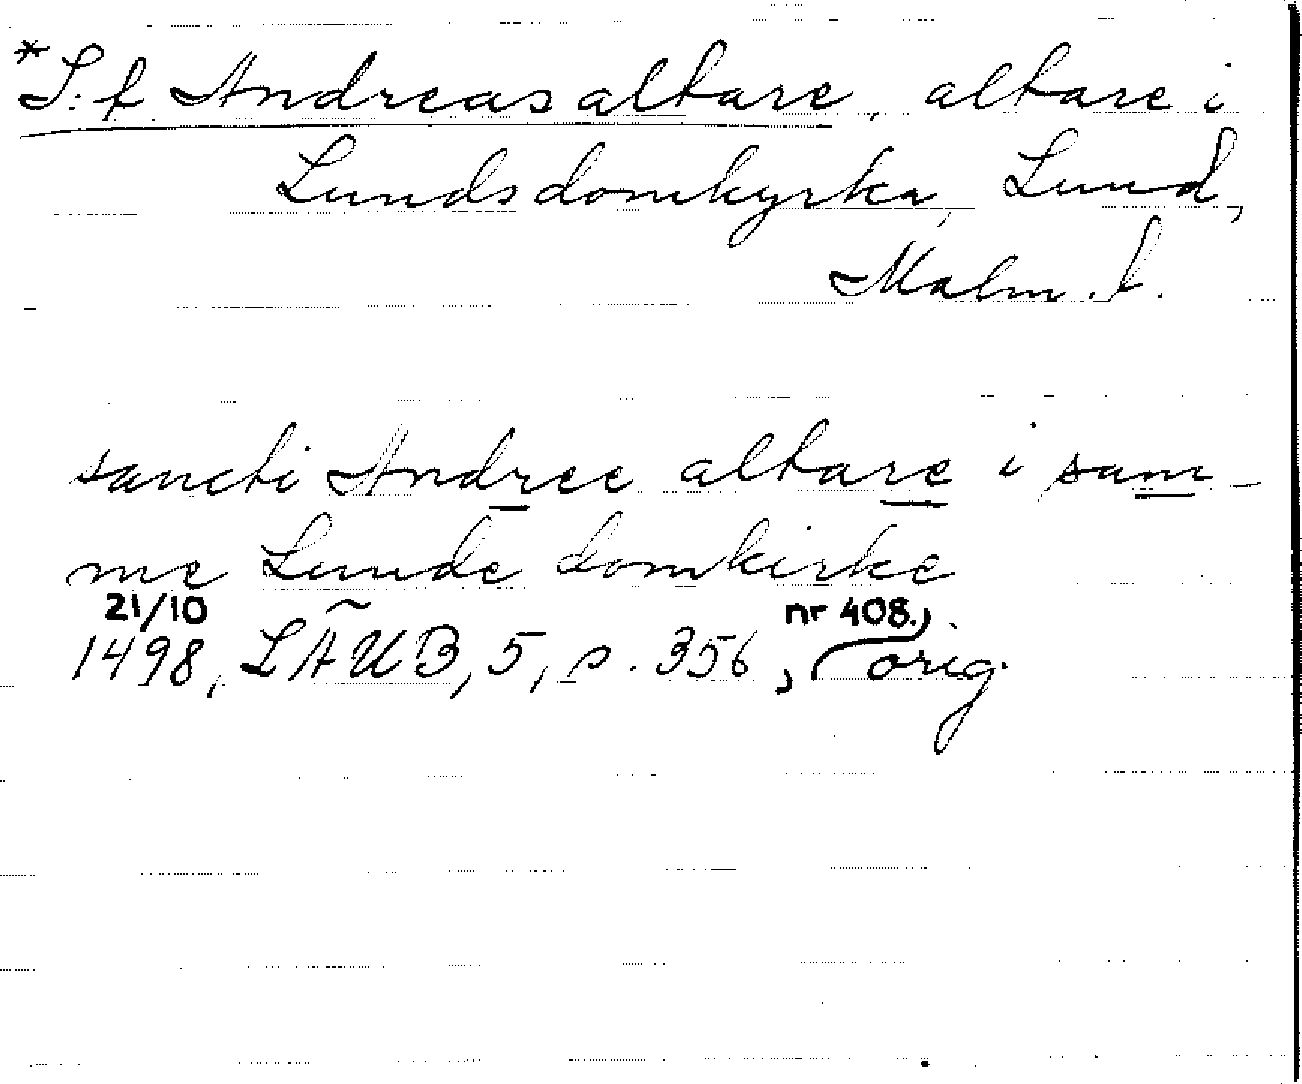 *S:t Andreas altare, altare i
Lunds domkyrka, Lund,
Malm. l.
sancti Andree altare i sam-
me Lunde domkirke
21/10 nr 408.
1498, LÃUB, 5, s. 356, orig.